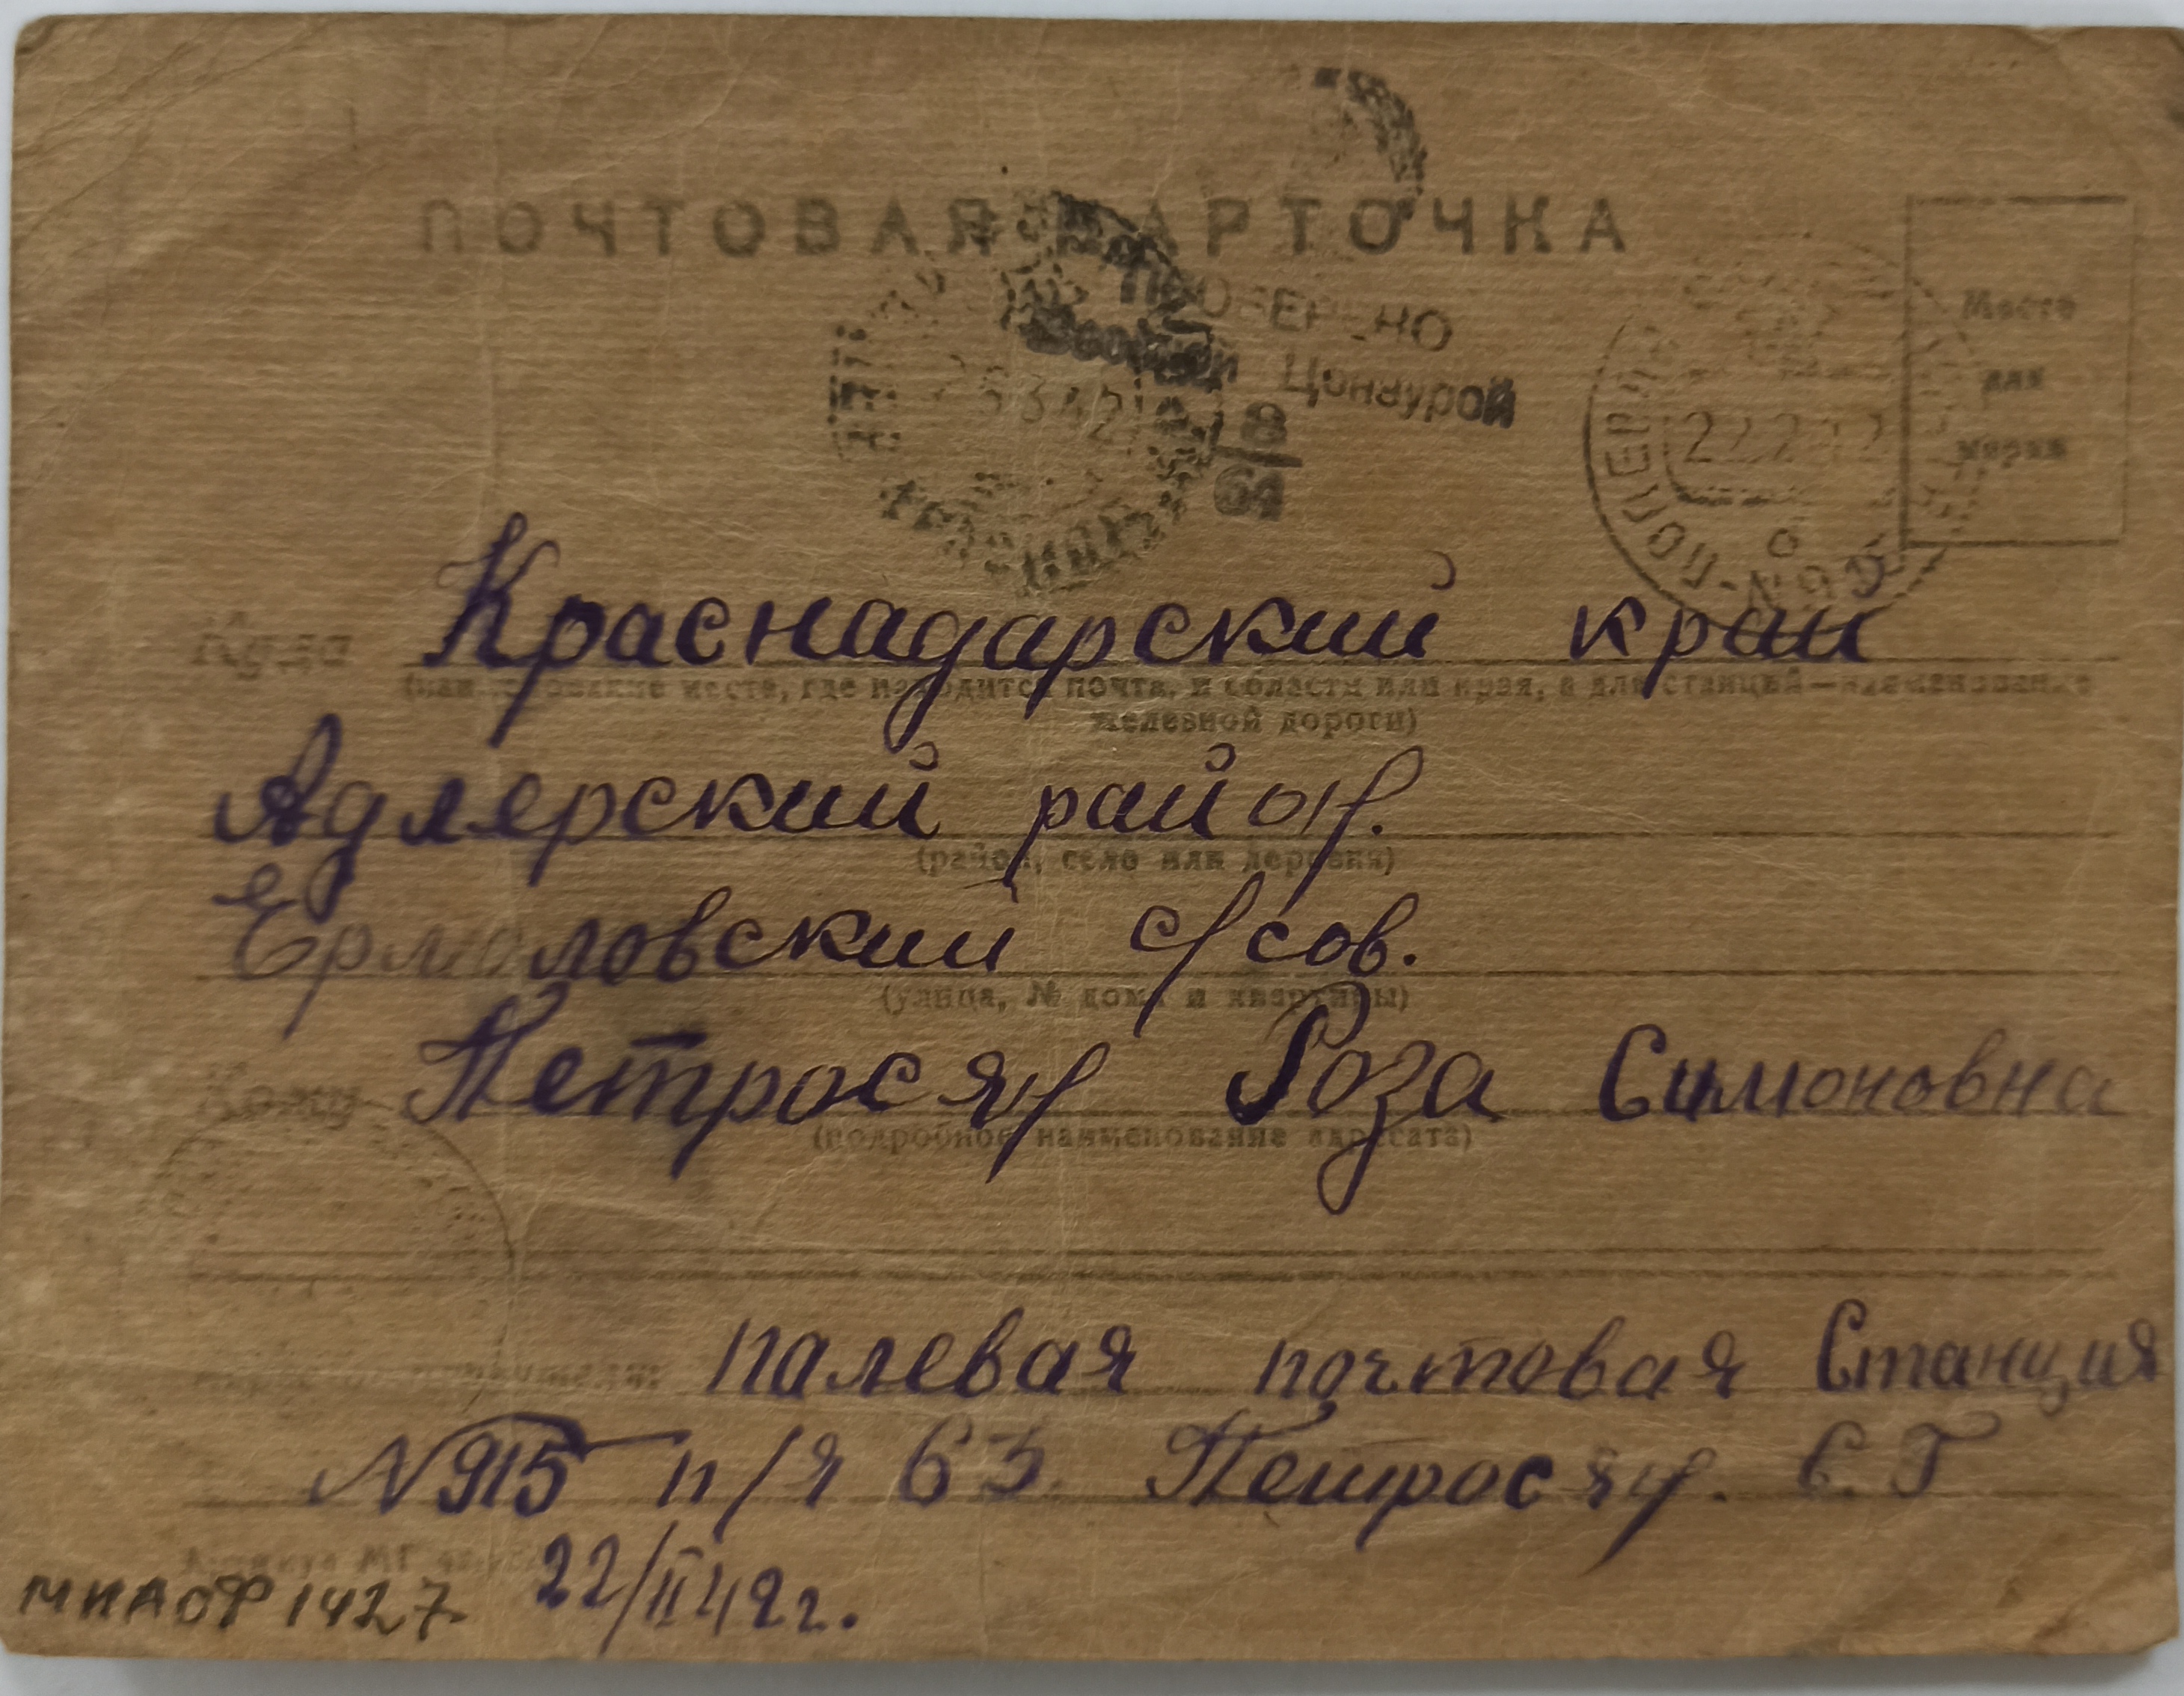 ПОЧТОВАЯ КАРТОЧКА
ПРОВЕРЕНО
Военной Цензурой
8
64
22 2 42
Место
для
марки
Куда Краснадарский край
(наименование места, где находится почта, и области или края, а для станций—наименование
железной дороги)
Адлерский район.
(район, село или деревня)
Ермоловский с/сов.
(улица, № дома и квартиры)
Кому Петросян Роза Симоновна
(подробное наименование адресата)
палевая почтовая Станция
№915 п/я 63. Петросян. С. Г
22/II 42 г.
МИАОФ 1427